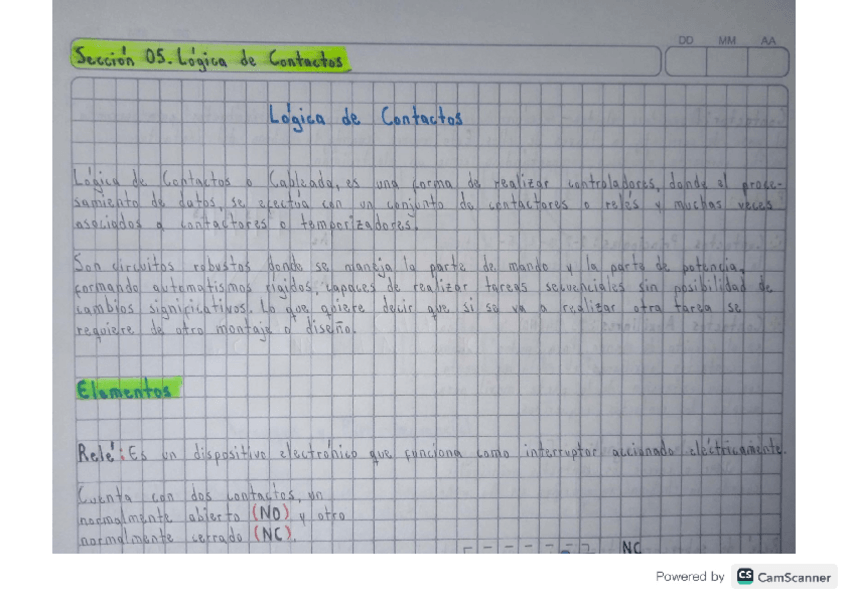 DD MM AA
Sección 05. Lógica de Contactos
Lógica de Contactos
Lógica de Contactos o Cableada, es una forma de realizar controladores, donde el proce-
samiento de datos, se efectúa con un conjunto de contactores o relés y muchas veces
asociados a contactores o temporizadores.
Son circuitos robustos donde se maneja la parte de mando y la parte de potencia,
formando automatismos rígidos, capaces de realizar tareas secuenciales sin posibilidad de
cambios significativos. Lo que quiere decir que si se va a realizar otra tarea se
requiere de otro montaje o diseño.
Elementos
Relé: Es un dispositivo electrónico que funciona como interruptor accionado eléctricamente.
Cuenta con dos contactos, un
normalmente abierto (NO) y otro
normalmente cerrado (NC).
NC
Powered by CS CamScanner